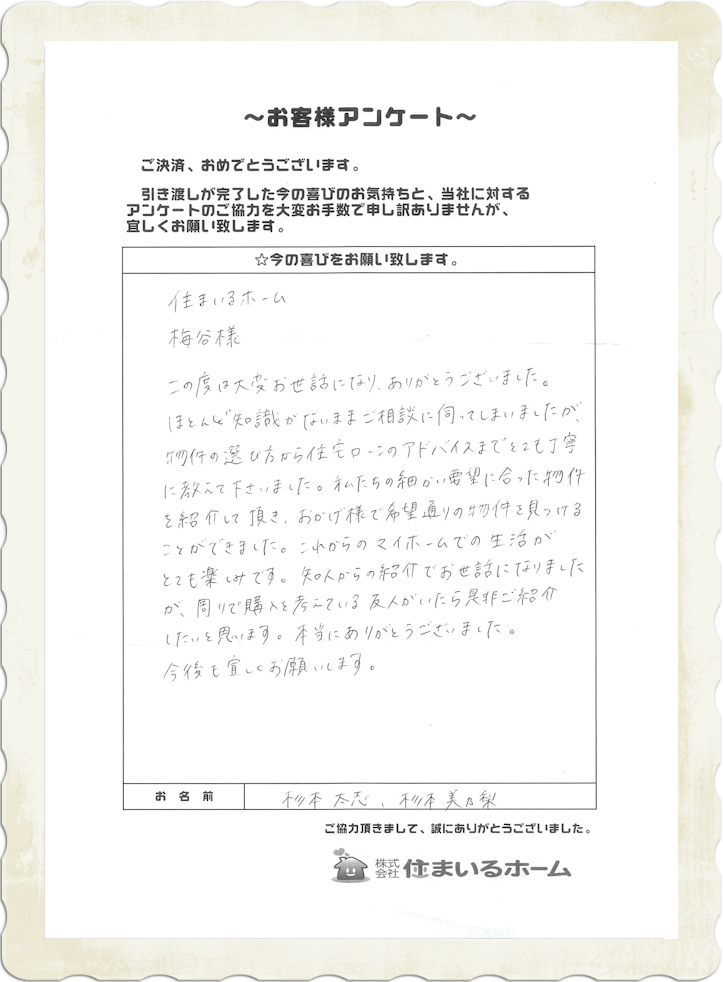 ～お客様アンケート～
ご決済、おめでとうございます。
引き渡しが完了した今の喜びのお気持ちと、当社に対する
アンケートのご協力を大変お手数で申し訳ありませんが、
宜しくお願い致します。
☆今の喜びをお願い致します。
住まいるホーム
梅谷様
この度は大変お世話になり、ありがとうございました。
ほとんど知識がないままご相談に伺ってしまいましたが、
物件の選び方から住宅ローンのアドバイスまでとても丁寧
に教えて下さいました。私たちの細かい要望に合った物件
を紹介して頂き、おかげ様で希望通りの物件を見つける
ことができました。これからのマイホームでの生活が
とても楽しみです。知人からの紹介でお世話になりました
が、周りで購入を考えている友人がいたら是非ご紹介
したいと思います。本当にありがとうございました。
今後も宜しくお願いします。
お名前
杉本 太志、杉本 美乃梨
ご協力頂きまして、誠にありがとうございました。
株式会社 住まいるホーム